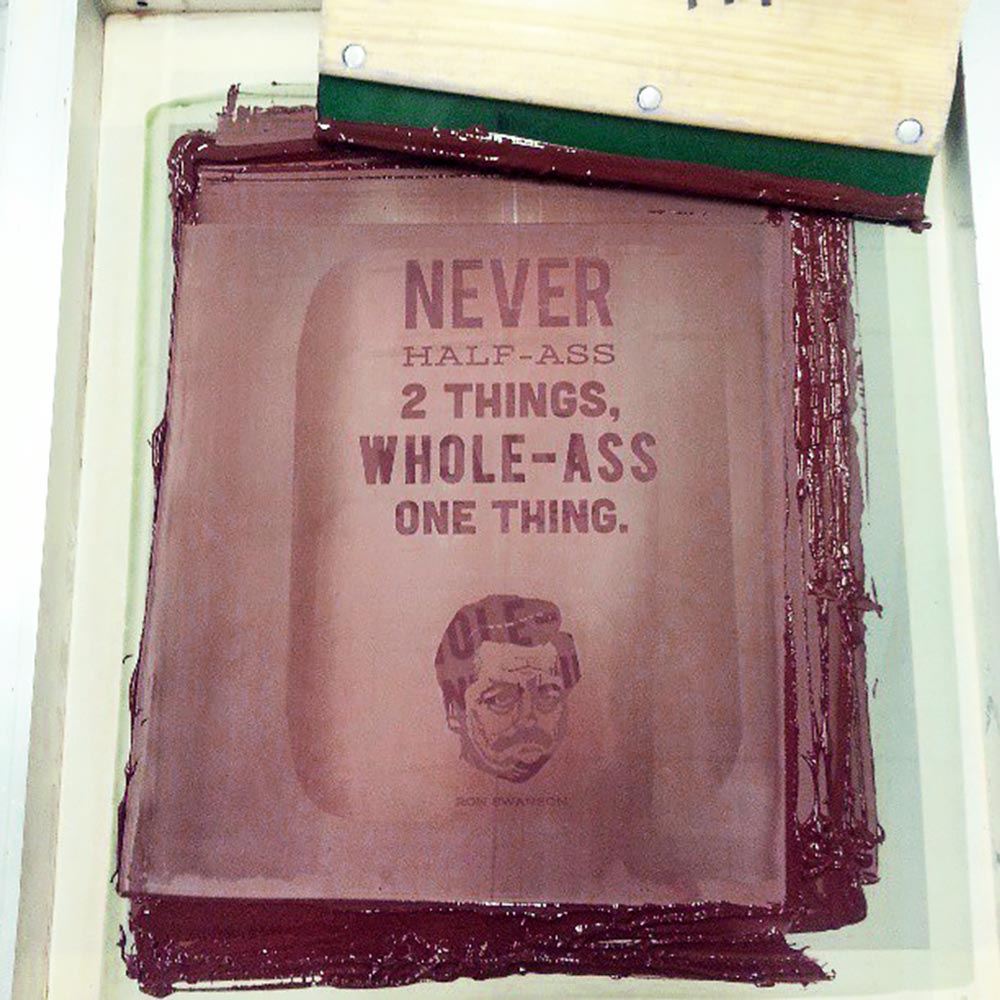 NEVER
HALF-ASS
2 THINGS,
WHOLE-ASS
ONE THING.
RON SWANSON